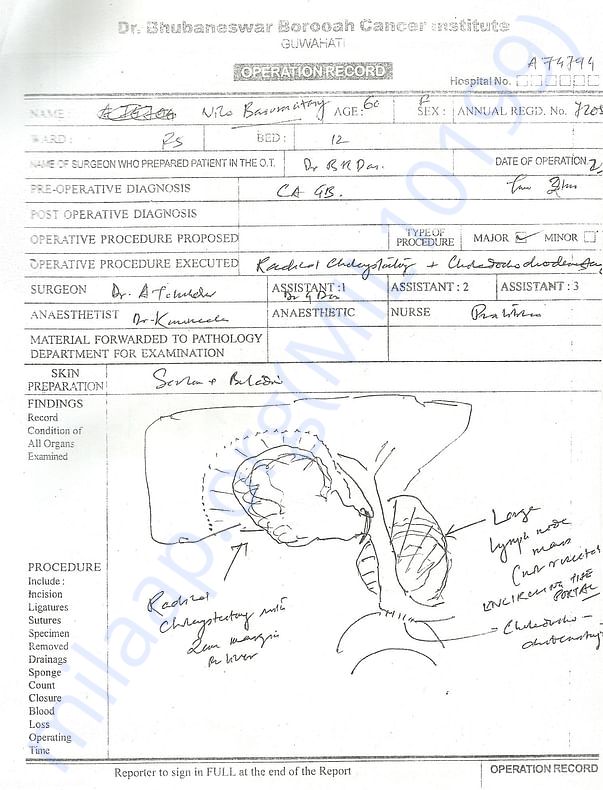 Dr. Bhubaneswar Borooah Cancer Institute
GUWAHATI
OPERATION RECORD
A 74794
Hospital No.
NAME: Nilo Basumatary AGE: 60 SEX: F ANNUAL REGD. No.
WARD: BED: 12
NAME OF SURGEON WHO PREPARED PATIENT IN THE O.T. Dr B R Das. DATE OF OPERATION
PRE-OPERATIVE DIAGNOSIS CA GB.
POST OPERATIVE DIAGNOSIS
OPERATIVE PROCEDURE PROPOSED TYPE OF PROCEDURE MAJOR MINOR
OPERATIVE PROCEDURE EXECUTED Radical +
SURGEON Dr. ASSISTANT :1 Dr G Das ASSISTANT : 2 ASSISTANT : 3
ANAESTHETIST Dr. ANAESTHETIC NURSE
MATERIAL FORWARDED TO PATHOLOGY
DEPARTMENT FOR EXAMINATION
SKIN
PREPARATION
FINDINGS
Record
Condition of
All Organs
Examined
Large
lymph node
mass
ENCIRCLING THE
PORTAL
Choledocho -
PROCEDURE
Include :
Incision
Ligatures
Sutures
Specimen
Removed
Drainags
Sponge
Count
Closure
Blood
Loss
Operating
Time
Radical
with
2cm margin
liver
Reporter to sign in FULL at the end of the Report
OPERATION RECORD
milaap.org(MIL_10199)